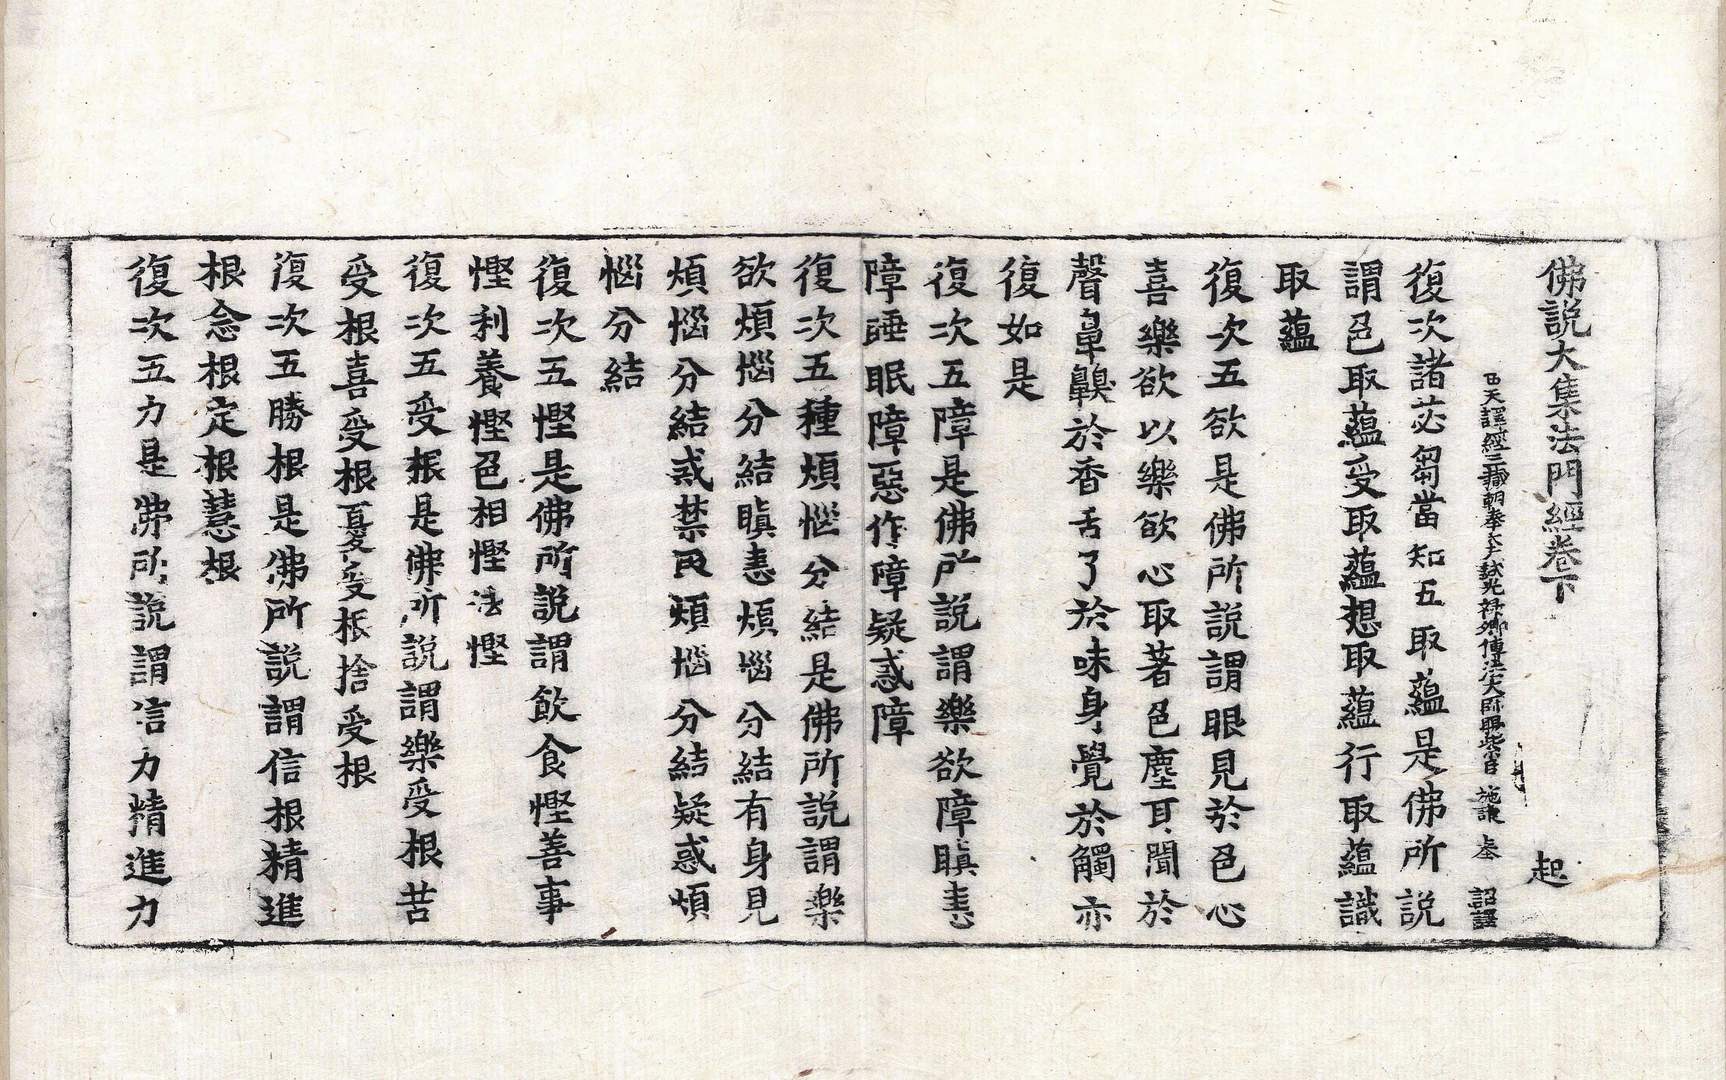 佛說大集法門經卷下　起
西天譯經三藏朝奉大夫試光祿卿傳法大師賜紫臣施護奉　詔譯
復次諸苾芻當知五取蘊是佛所說
謂色取蘊受取蘊想取蘊行取蘊識
取蘊
復次五欲是佛所說謂眼見於色心
喜樂欲以樂欲心取著色塵耳聞於
聲鼻齅於香舌了於味身覺於觸亦
復如是
復次五障是佛所說謂樂欲障瞋恚
障睡眠障惡作障疑惑障
復次五種煩惱分結是佛所說謂樂
欲煩惱分結瞋恚煩惱分結有身見
煩惱分結戒禁取煩惱分結疑惑煩
惱分結
復次五慳是佛所說謂飲食慳善事
慳利養慳色相慳法慳
復次五受根是佛所說謂樂受根苦
受根喜受根憂受根捨受根
復次五勝根是佛所說謂信根精進
根念根定根慧根
復次五力是佛所說謂信力精進力